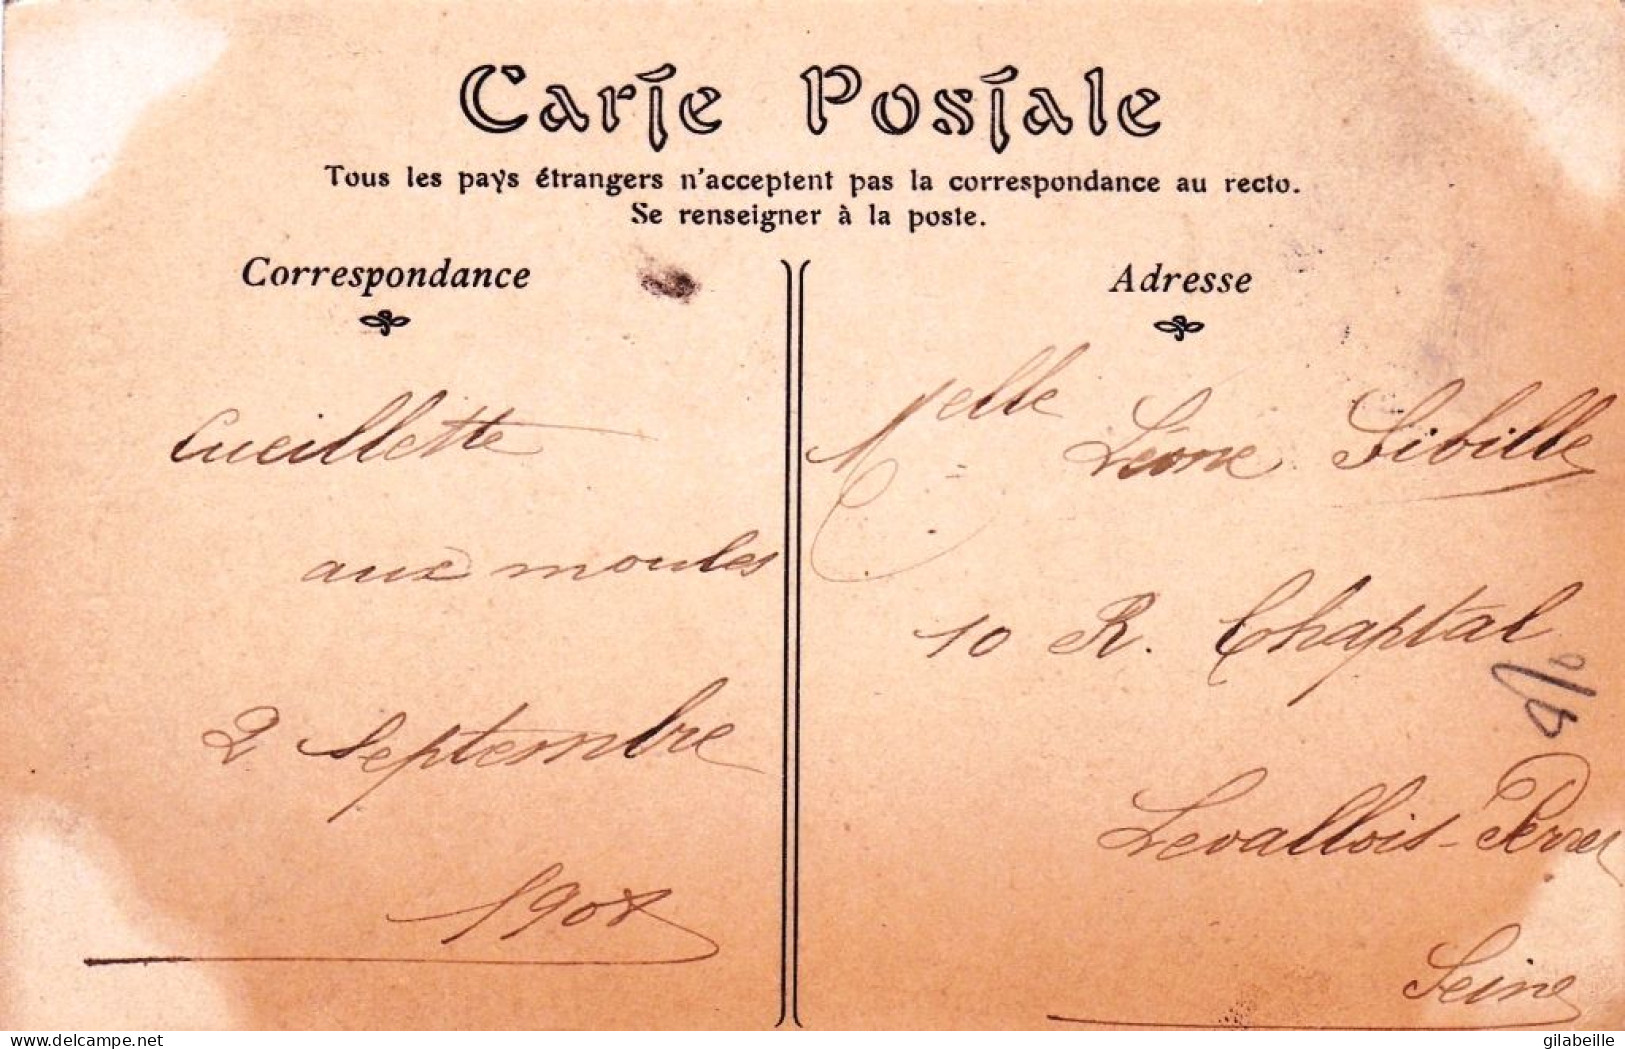 Carte Postale
Tous les pays étrangers n'acceptent pas la correspondance au recto.
Se renseigner à la poste.
Correspondance
Cueillette
aux moules
2 Septembre
1908
Adresse
Melle Léone Sibille
10 R. Chaptal
Levallois-Perret
Seine
www.delcampe.net
gilabeille